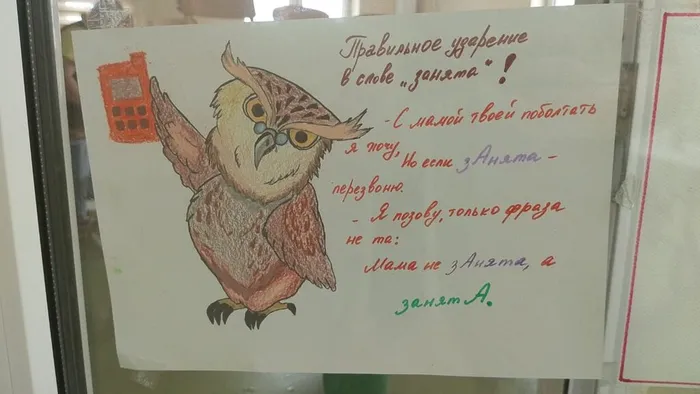 Правильное ударение
в слове „занята“!
- С мамой твоей поболтать
я хочу,
Но если зАнята -
перезвоню.
- Я позову, только фраза
не та:
Мама не зАнята, а
занятА.